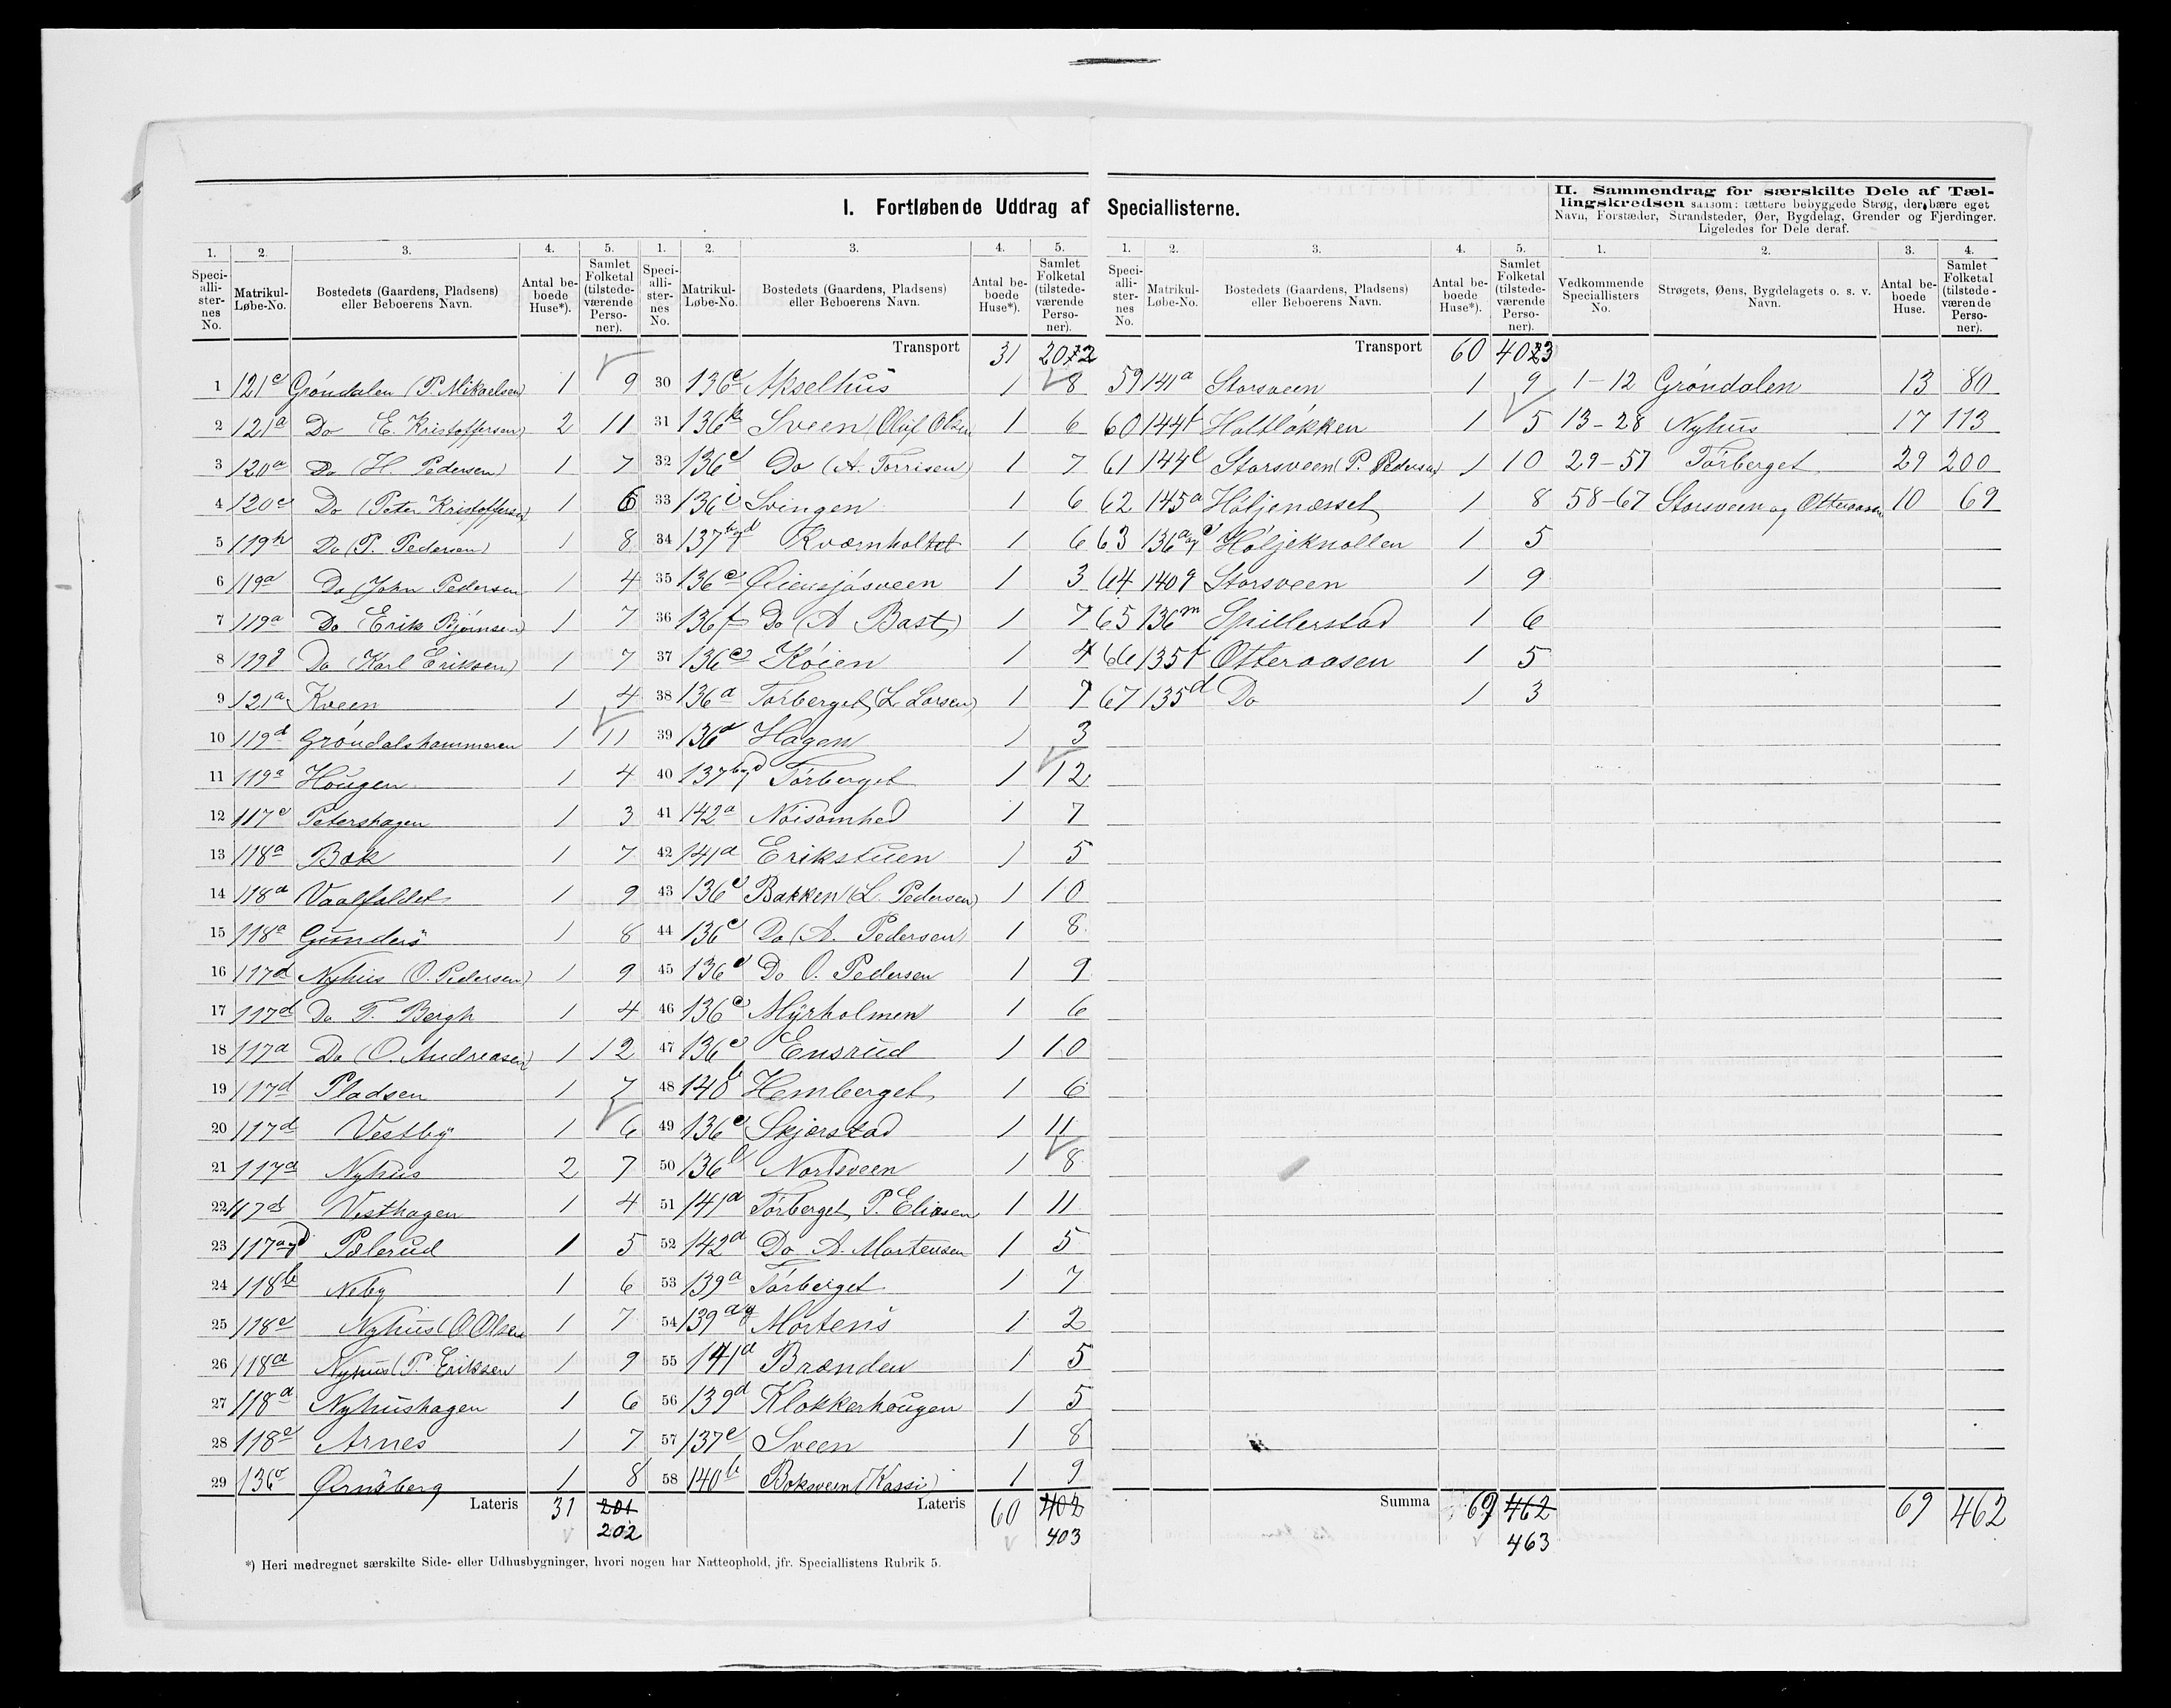 I. Fortløbende Uddrag af Speciallisterne.
II. Sammendrag for særskilte Dele af Tæl-
lingskredsen saasom: tættere bebyggede Strøg, der bære eget
Navn, Forstæder, Strandsteder, Øer, Bygdelag, Grender og Fjerdinger.
Ligeledes for Dele deraf.
1. 2. 3. 4. 5.
Speci-alli-ster-nes No. Matrikul-Løbe-No. Bostedets (Gaardens, Pladsens) eller Beboerens Navn. Antal be-boede Huse*). Samlet Folketal (tilstede-værende Perso-ner).
1 121c Gröndalen (P. Mikaelsen) 1 9
2 121a Do E. Kristoffersen) 2 11
3 120a Do (H. Pedersen) 1 7
4 120c Do (Peter Kristoffersen 1 6
5 119h Do (P. Pedersen) 1 8
6 119a Do (John Pedersen 1 4
7 119a Do (Erik Bjørnsen) 1 7
8 119g Do (Karl Eriksen) 1 7
9 121a Kveen 1 4
10 119d Gröndalshammeren 1 11
11 119a Hougen 1 4
12 117c Petershagen 1 3
13 118a Bak 1 7
14 118a Vaalfaldet 1 9
15 118a Gunders 1 8
16 117d Nyhus (O. Pedersen) 1 9
17 117d Do T. Bergh 1 4
18 117a Do (O. Andreasen) 1 12
19 117d Pladsen 1 7
20 117d Vestby 1 6
21 117a Nyhus 2 7
22 117d Vesthagen 1 4
23 117a og d Pælerud 1 5
24 118b Neby 1 6
25 118c Nyhus (O Olsen 1 7
26 118a Nyhus (P. Eriksen 1 9
27 118a Nyhushagen 1 6
28 118c Arnes 1 7
29 136 Ørnsberg 1 8
Lateris 31 201
202
1. 2. 3. 4. 5.
Speci-alli-ster-nes No. Matrikul-Løbe-No. Bostedets (Gaardens, Pladsens) eller Beboerens Navn. Antal be-boede Huse*). Samlet Folketal (tilstede-værende Perso-ner).
Transport 31 2012
30 136c Akselhus 1 8
31 136k Sveen (Oluf Olsen 1 6
32 136c Do (A. Torrisen) 1 7
33 136i Svingen 1 6
34 137b og d Kværnholtet 1 6
35 136c Øiensjösveen 1 3
36 136f Do (A Bast) 1 7
37 136c Köien 1 4
38 136a Törberget (L Larsen) 1 7
39 136a Hagen 1 3
40 137b og d Törberget 1 12
41 142a Nöisomhed 1 7
42 141a Erikstuen 1 5
43 136c Bakken (L. Pedersen) 1 10
44 136c Do (A. Pedersen) 1 8
45 136c Do O. Pedersen 1 9
46 136c Myrholmen 1 6
47 136c Ensrud 1 10
48 140b Hemberget 1 6
49 136c Skjærstad 1 11
50 136l Nordsveen 1 8
51 141a Törberget, P. Eliasen 1 11
52 142a Do A. Mortensen 1 5
53 139a Törberget 1 7
54 139a Mortens 1 2
55 141a Brænden 1 5
56 139d Klokkerhougen 1 5
57 137c Sveen 1 8
58 140b Boksveen (Kassi) 1 9
Lateris 60 402
403
1. 2. 3. 4. 5.
Speci-alli-ster-nes No. Matrikul-Løbe-No. Bostedets (Gaardens, Pladsens) eller Beboerens Navn. Antal be-boede Huse*). Samlet Folketal (tilstede-værende Perso-ner).
Transport 60 4023
59 141a Storsveen 1 9
60 144f Holtlökken 1 5
61 144c Storsveen (P. Pedersen) 1 10
62 145a Höljenæsset 1 8
63 136a og c Höljeknollen 1 5
64 140g Storsveen 1 9
65 136m Spillerstad 1 6
66 135f Otteraasen 1 5
67 135d Do 1 3
Summa 69 462
463
1. 2. 3. 4.
Vedkommende Speciallisters No. Strøgets, Øens, Bygdelagets o. s. v. Navn. Antal be-boede Huse. Samlet Folketal (tilstede-værende Perso-ner).
1-12 Gröndalen 13 80
13-28 Nyhus 17 113
29-57 Törberget 29 200
58-67 Storsveen og Otteraasen 10 69
69 462
*) Heri medregnet særskilte Side- eller Udhusbygninger, hvori nogen har Natteophold, jfr. Speciallistens Rubrik 5.